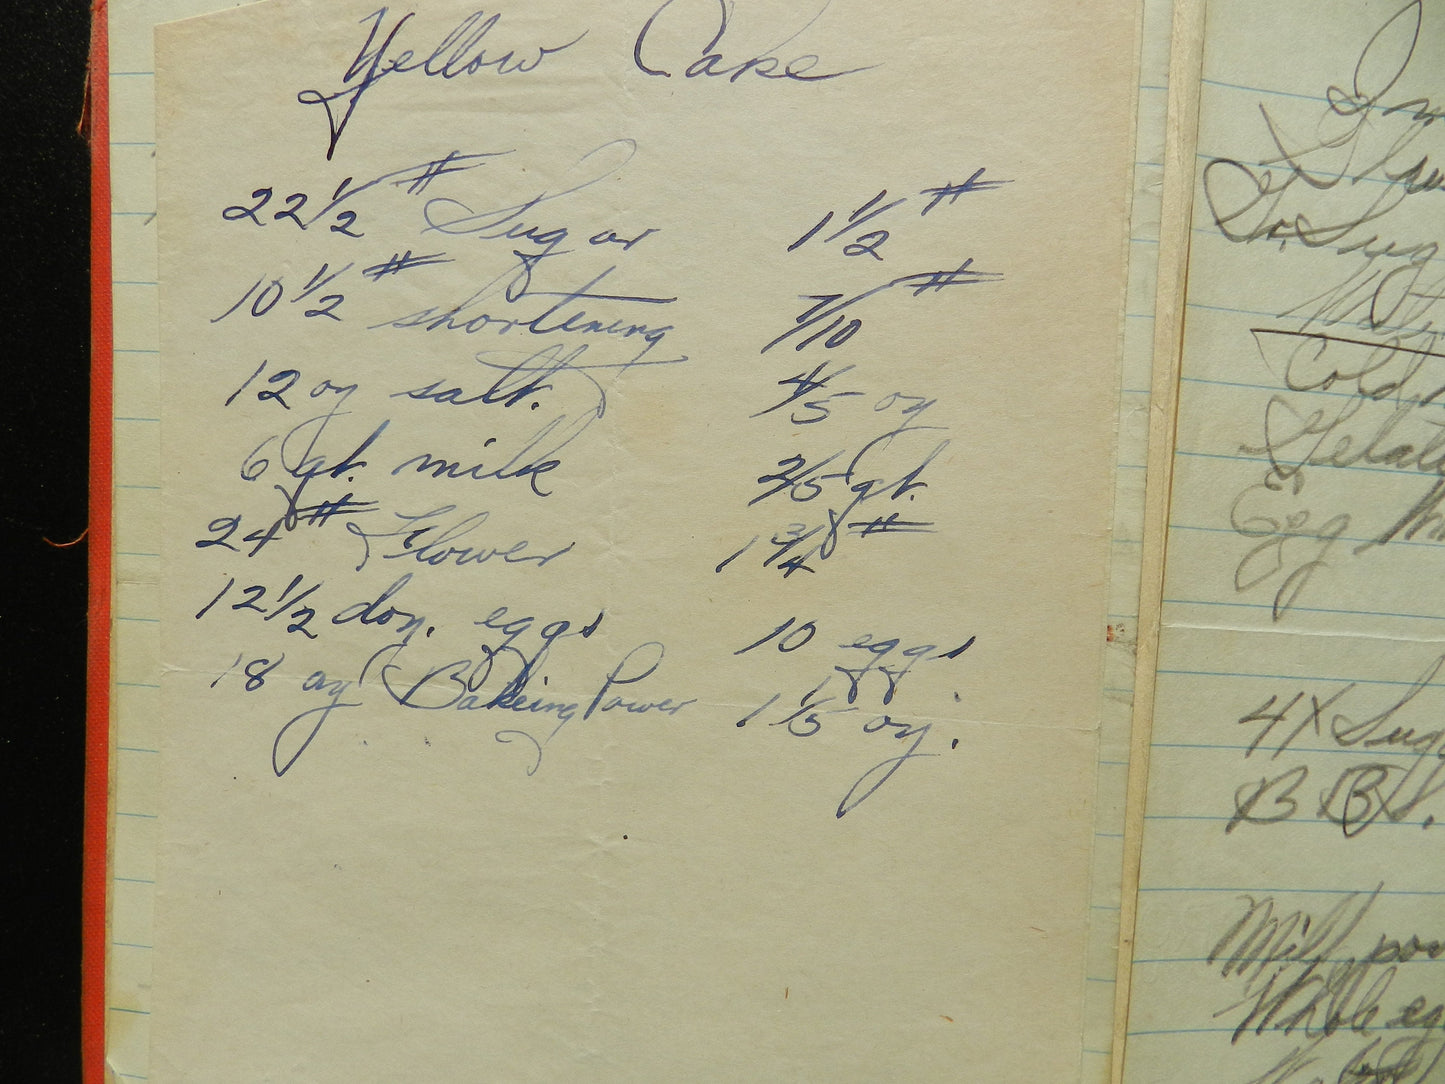 Yellow Cake
22 1/2 # Sugar 1 1/2 #
10 1/2 # shortening 7/10 #
12 oz salt. 4/5 oz
6 qt. milk 2/5 qt.
24 # Flower 1 3/4 #
12 1/2 doz. eggs 10 eggs
18 oz Bakeing Power 1 1/5 oz.
Cold
Egg
4X Sug
B B S.
Milk pow
Whole eg